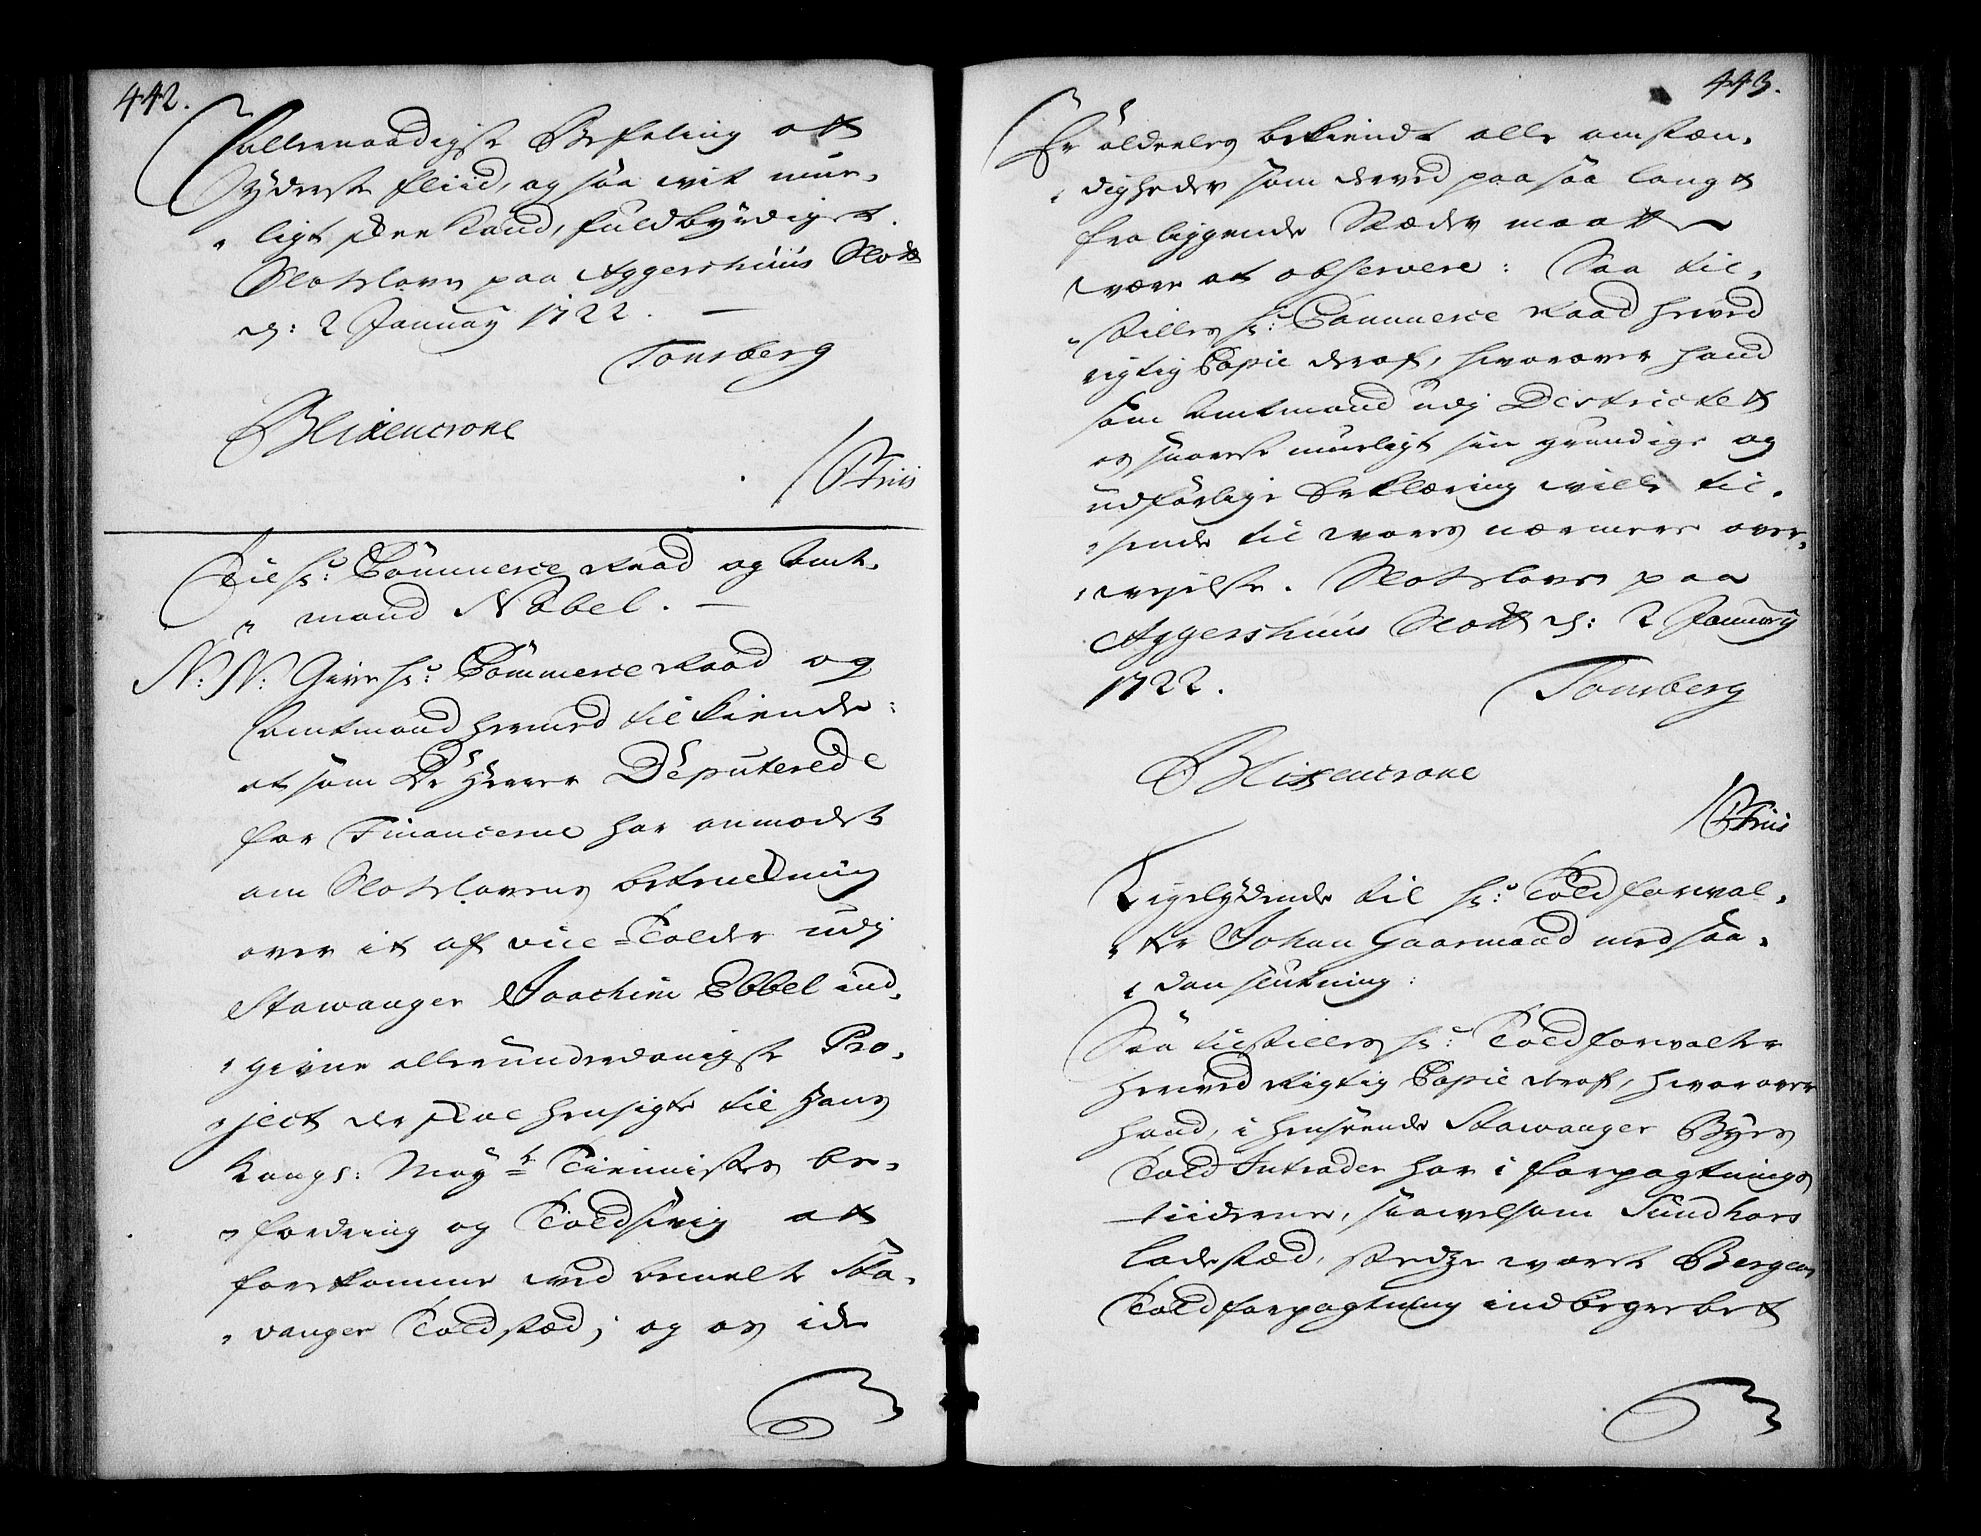 442.
allernaadigste Befaling att
Yderste fliid, og saa vit mue-
ligt skee kand, fuldbyrdiget.
Slotsloven paa Aggershuus Slott
d: 2 January 1722.
Tonsberg
Blixencrone
P Friis
Til Hr: Commerce Raad og Amt-
mand Nobel.
N: N: Give Hr: Commerce Raad og
Amtmand hermed tilkiende:
at som De Herrer Deputerede
for Financerne har anmodet
om Slotslovens betenckning
over it af vice Tolder udj
Stawanger Joachim Ebbel ind-
givne allerunderdanigste Pro-
ject der skal hensigte til Hans
Kongs: May:ts Tiennistes be-
fordring og Toldsvig att
forekomme ved bemelte Sta-
vanger Toldsted; og os icke
443.
Er aldeeles bekiendt alle omstæn-
digheder som derved paa saa langt
fraliggende Stæder maatte
være at observere: Saa til-
stilles Hr: Commerce Raad herved
rigtig Copie deraf, hvorover hand
som Amtmand udj Districtet
os snareste mueligt sin grundige og
udførlige Erklæring ville til-
sende til vores nærmere over-
vejelse. Slotsloven paa
Aggershuus Slott d: 2 January
1722.
Tonsberg
Blixencrone
P Friis
Ligelydende til Hr: Toldforval-
ter Johan Gaarmand med saa-
dan slutning:
Saa tilstilles Hr: Toldforvalter
herved Rigtig Copie deraf, hvorover
hand, i henseende Stawanger Byes
Told Intrader har i forpagtnings
tiiderne, saavelsom Sundhors
ladested, stedze været Bergens
Toldforpagtning indbegrebet